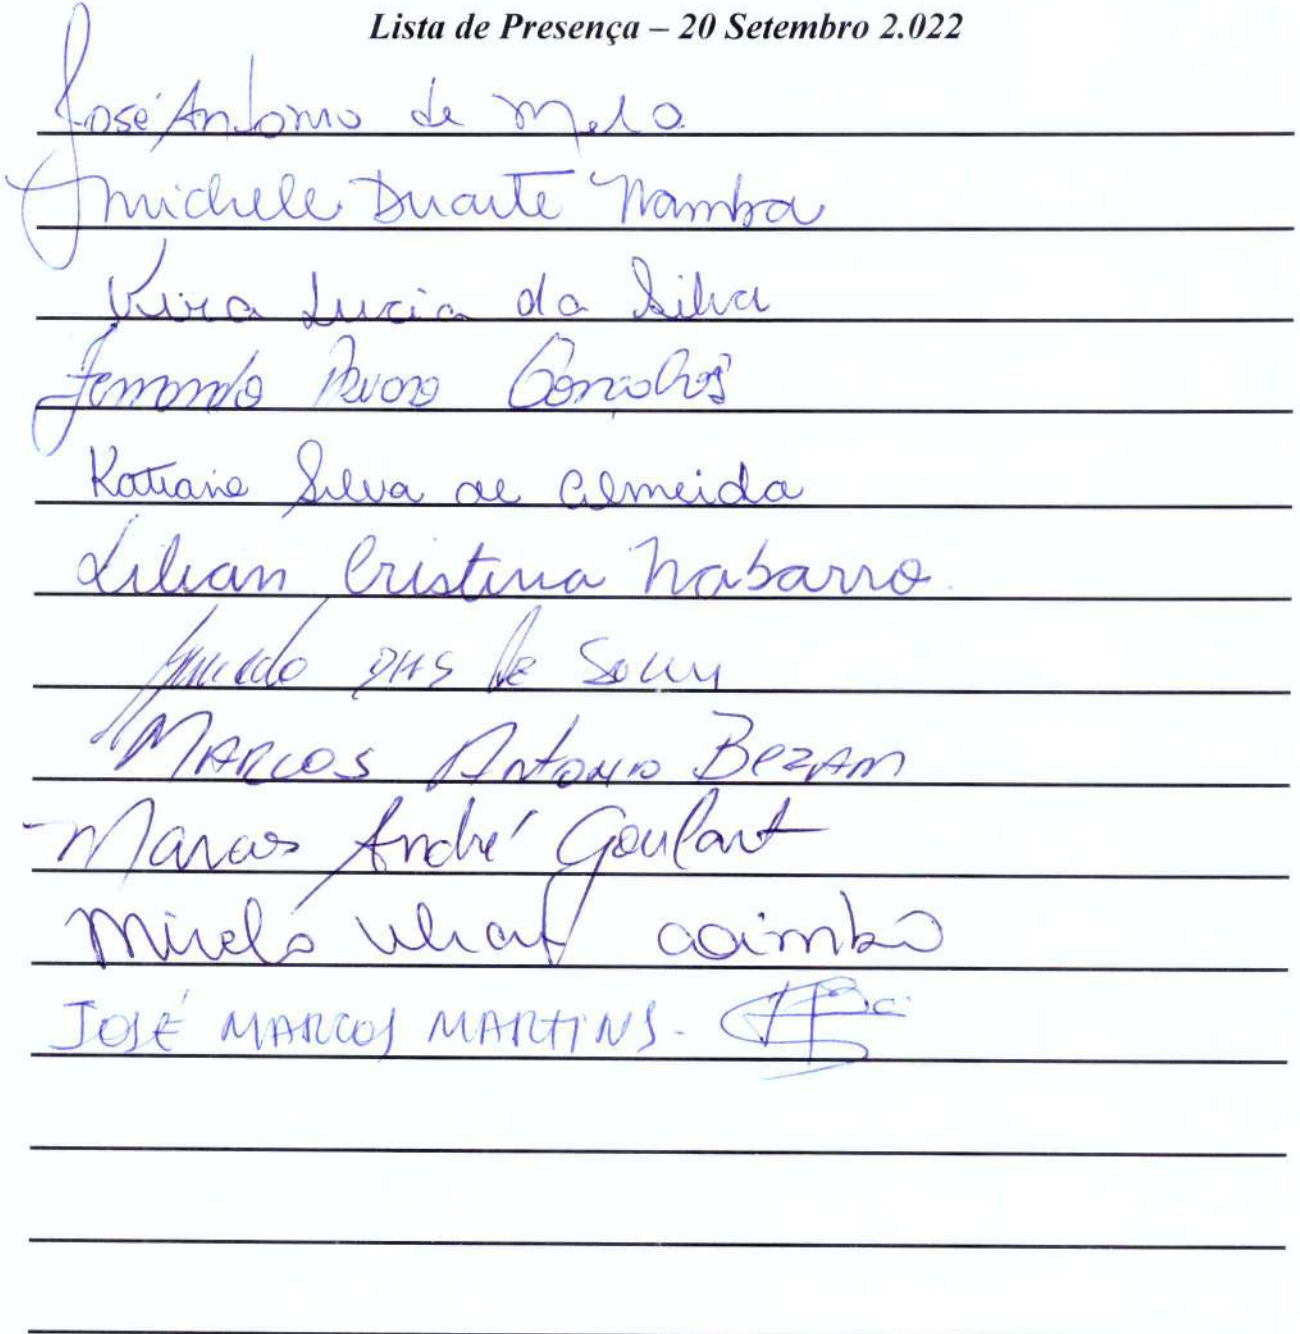 Lista de Presença – 20 Setembro 2.022
José Antonio de Melo
Michele Duarte Namba
Vera Lucia da Silva
Fernando Gonçalves
Katiane Silva de Almeida
Lilian Cristina Nabarro
Dias de Souza
Marcos Antonio
Marcos André Goulart
JOSÉ MARCOS MARTINS -